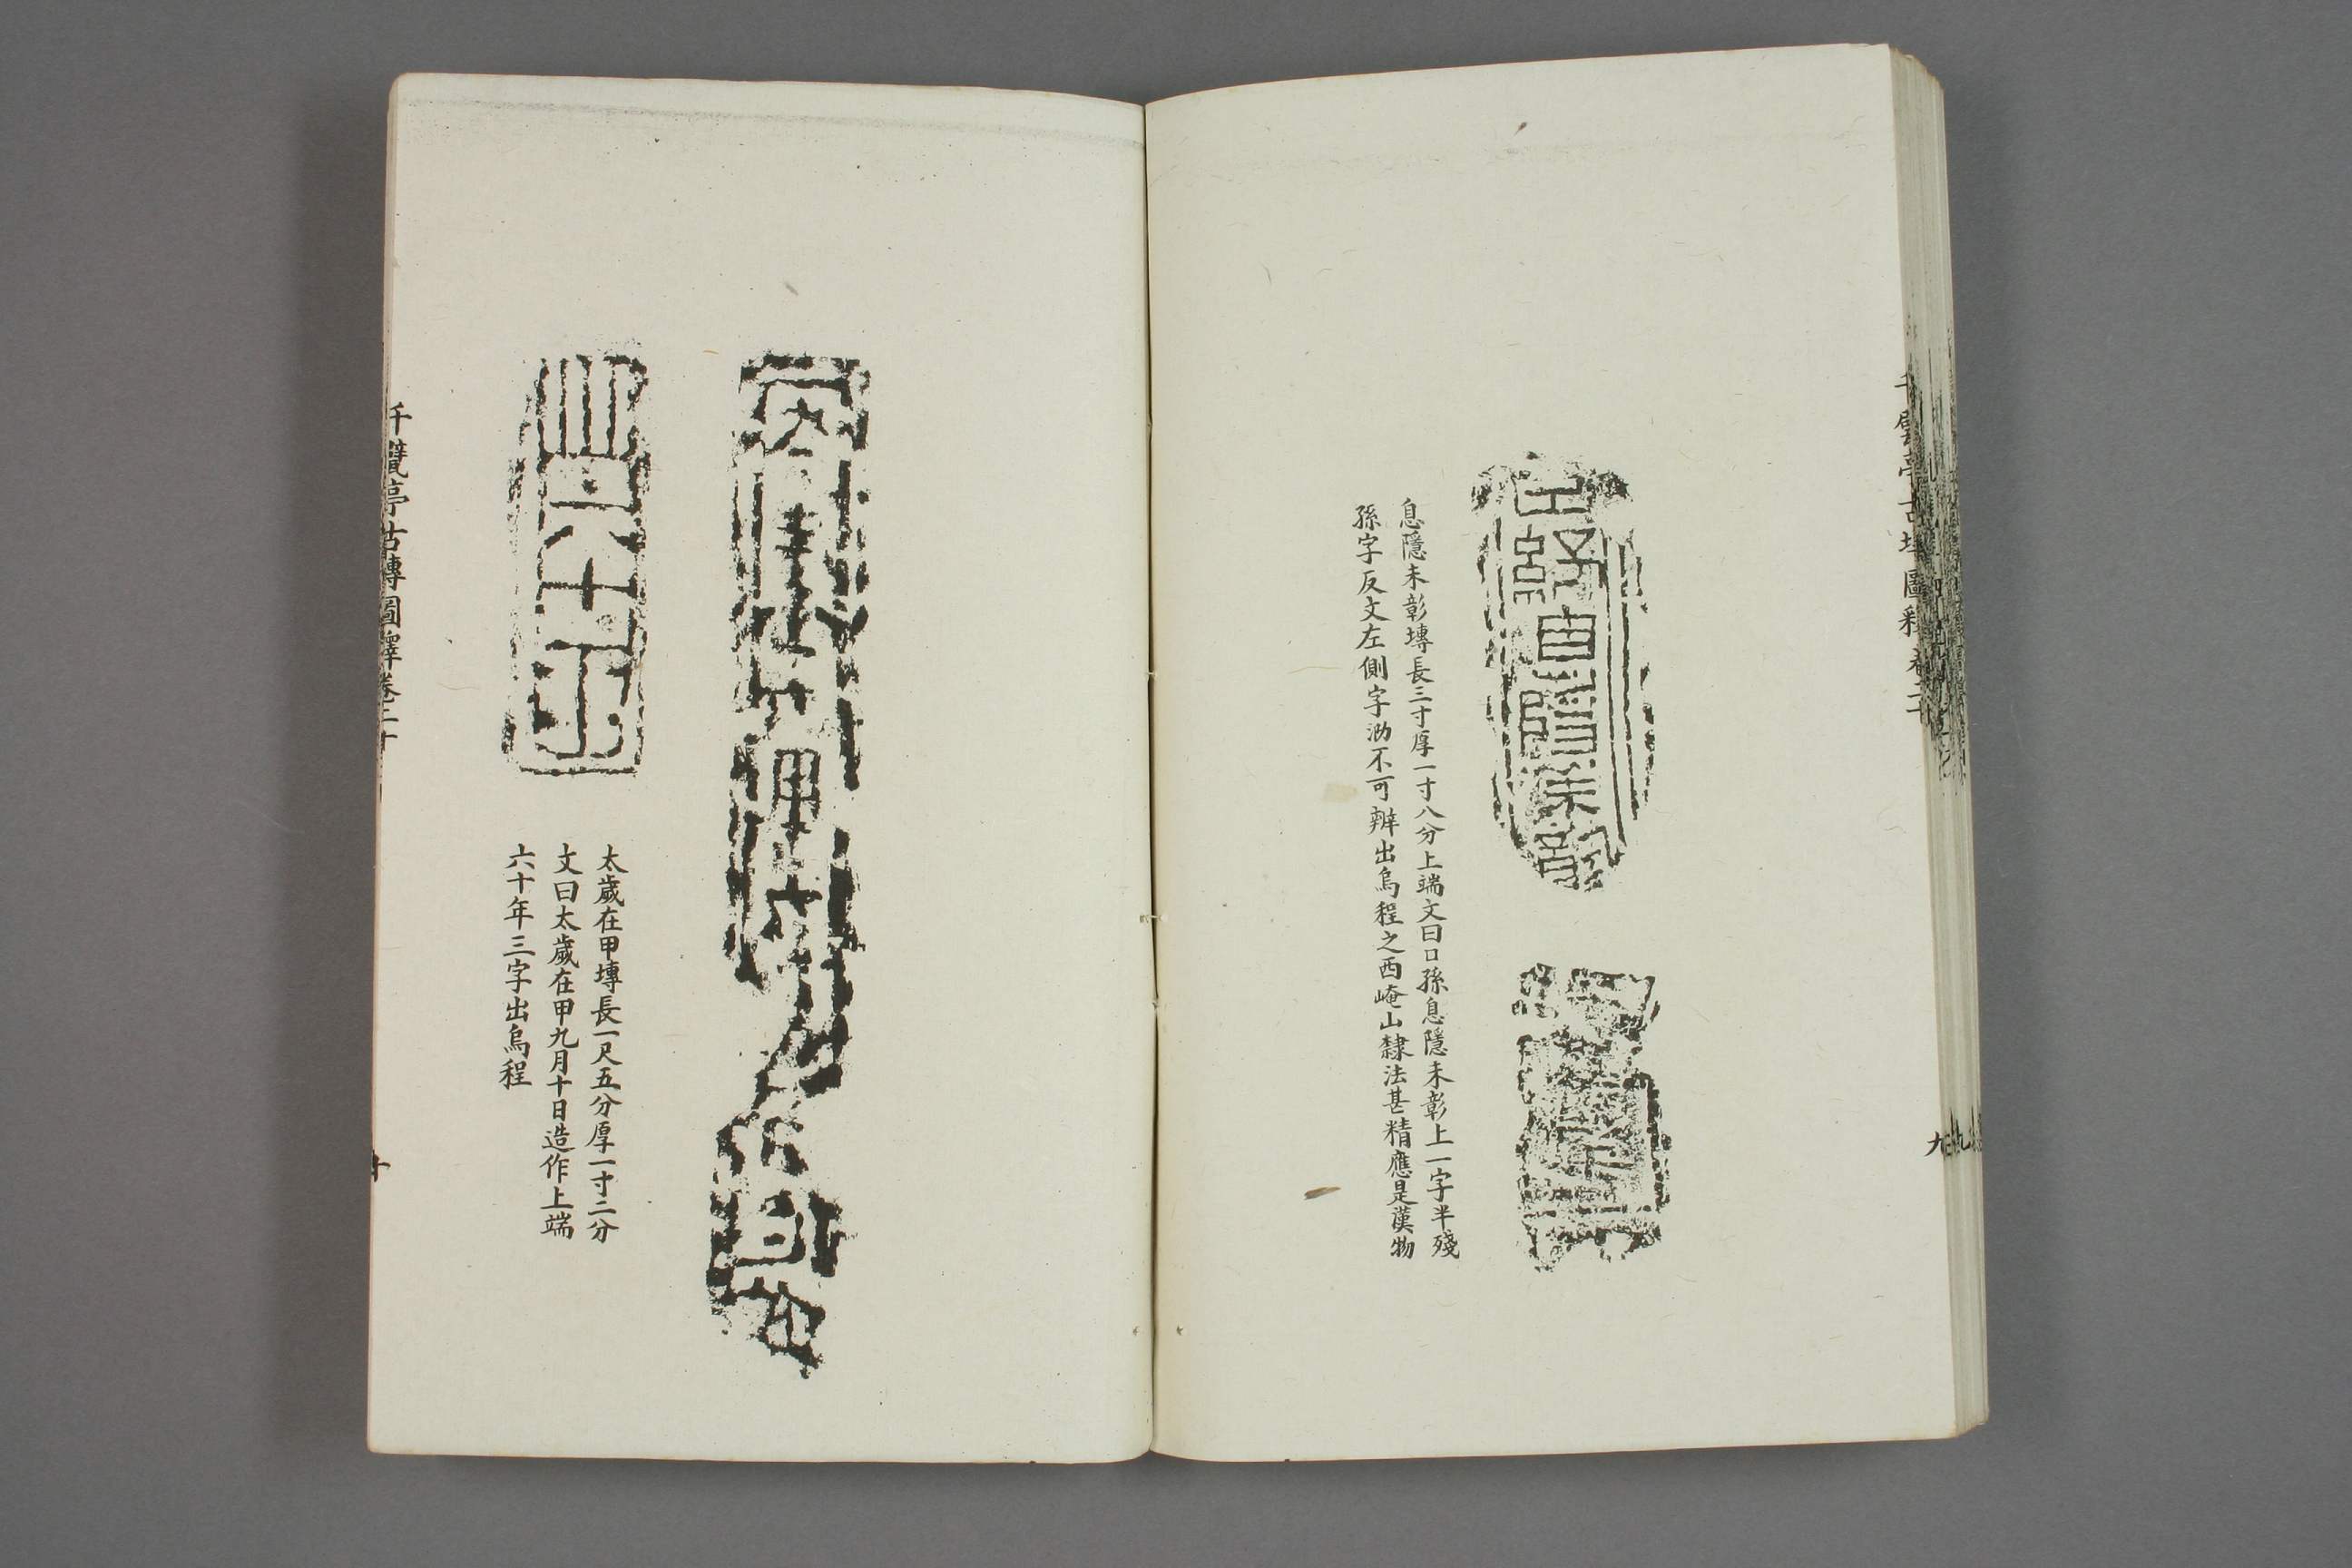 息隱未彰塼長三寸厚一寸八分上端文曰口孫息隱未彰上一字半殘
孫字反文左側字泐不可辨出烏程之西崦山隸法甚精應是漢物
九
太歲在甲塼長一尺五分厚一寸二分
文曰太歲在甲九月十日造作上端
六十年三字出烏程
千甓亭古塼圖釋卷二十
十